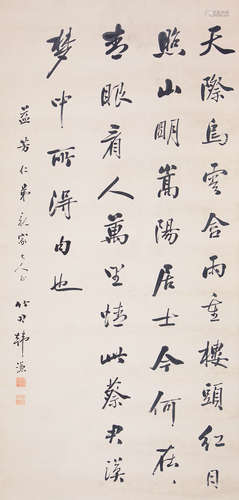 天際烏雲含雨重樓頭紅日
照山明嵩陽居士今何在
青眼看人萬里情此蔡君謨
夢中所得句也
益芳仁弟親家大人正 韓